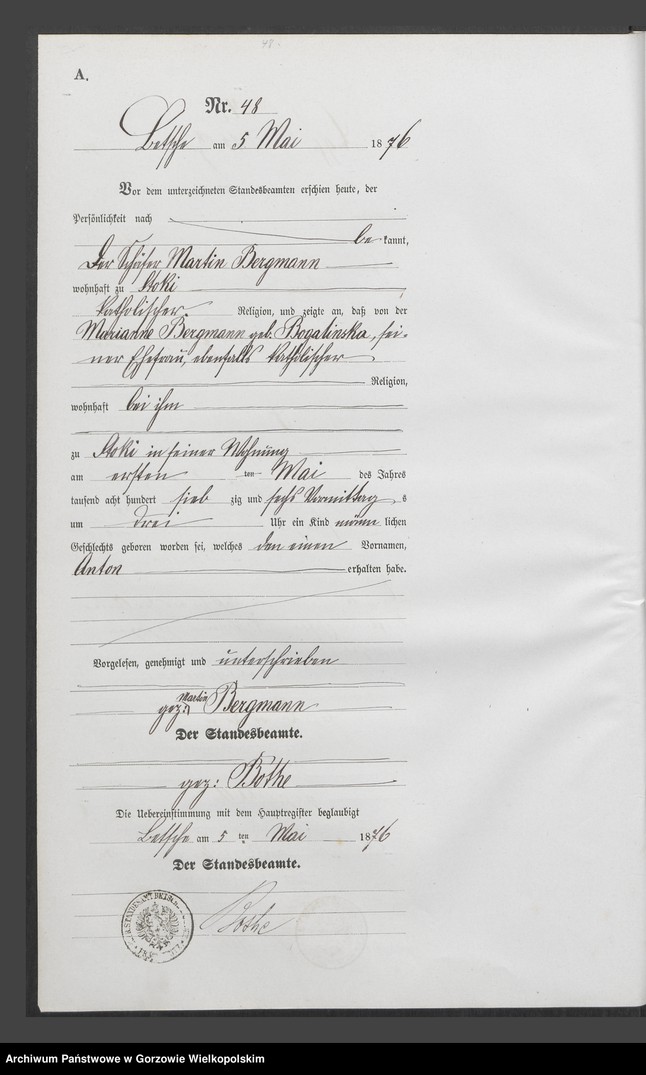 48.
A.
Nr. 48
Betsche am 5 Mai 1876
Vor dem unterzeichneten Standesbeamten erschien heute, der
Persönlichkeit nach
be kannt,
Der Schäfer Martin Bergmann
wohnhaft zu Stoki
katholischer Religion, und zeigte an, daß von der
Marianne Bergmann geb. Bogalinska, sei-
ner Ehefrau, ebenfalls katholischer
Religion,
wohnhaft bei ihm
zu Stoki in seiner Wohnung
am ersten ten Mai des Jahres
tausend acht hundert sieb zig und sechs Vormittag s
um drei Uhr ein Kind männ lichen
Geschlechts geboren worden sei, welches den einen Vornamen,
Anton erhalten habe.
Vorgelesen, genehmigt und unterschrieben
gez: Martin Bergmann
Der Standesbeamte.
gez: Bothe
Die Uebereinstimmung mit dem Hauptregister beglaubigt
Betsche am 5 ten Mai 1876
Der Standesbeamte.
Bothe
Archiwum Państwowe w Gorzowie Wielkopolskim